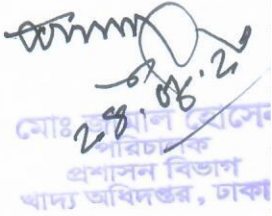 ২৪.০৮.২
মোঃ জামাল হোসেন
পরিচালক
প্রশাসন বিভাগ
খাদ্য অধিদপ্তর, ঢাকা